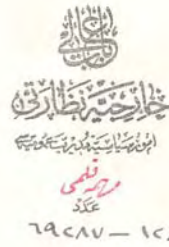 باب عالی
خارجیه نظارتی
امور سیاسیه مدیریت عمومیه سی
مهمه قلمی
عدد